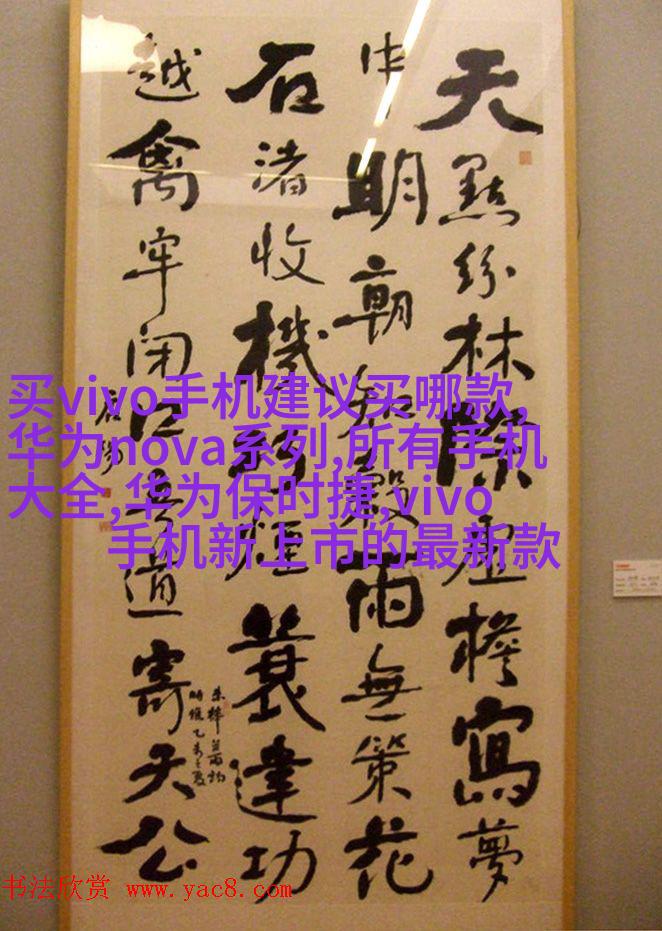 天點紛林際虛檐寫夢
中明朝知穀雨無策花
石渚收機煙蓑功
越禽牢閉口吾道寄天公
买vivo手机建议买哪款,
华为nova系列,所有手机
大全,华为保时捷,vivo
手机新上市的最新款
书法欣赏 www.yac8.com